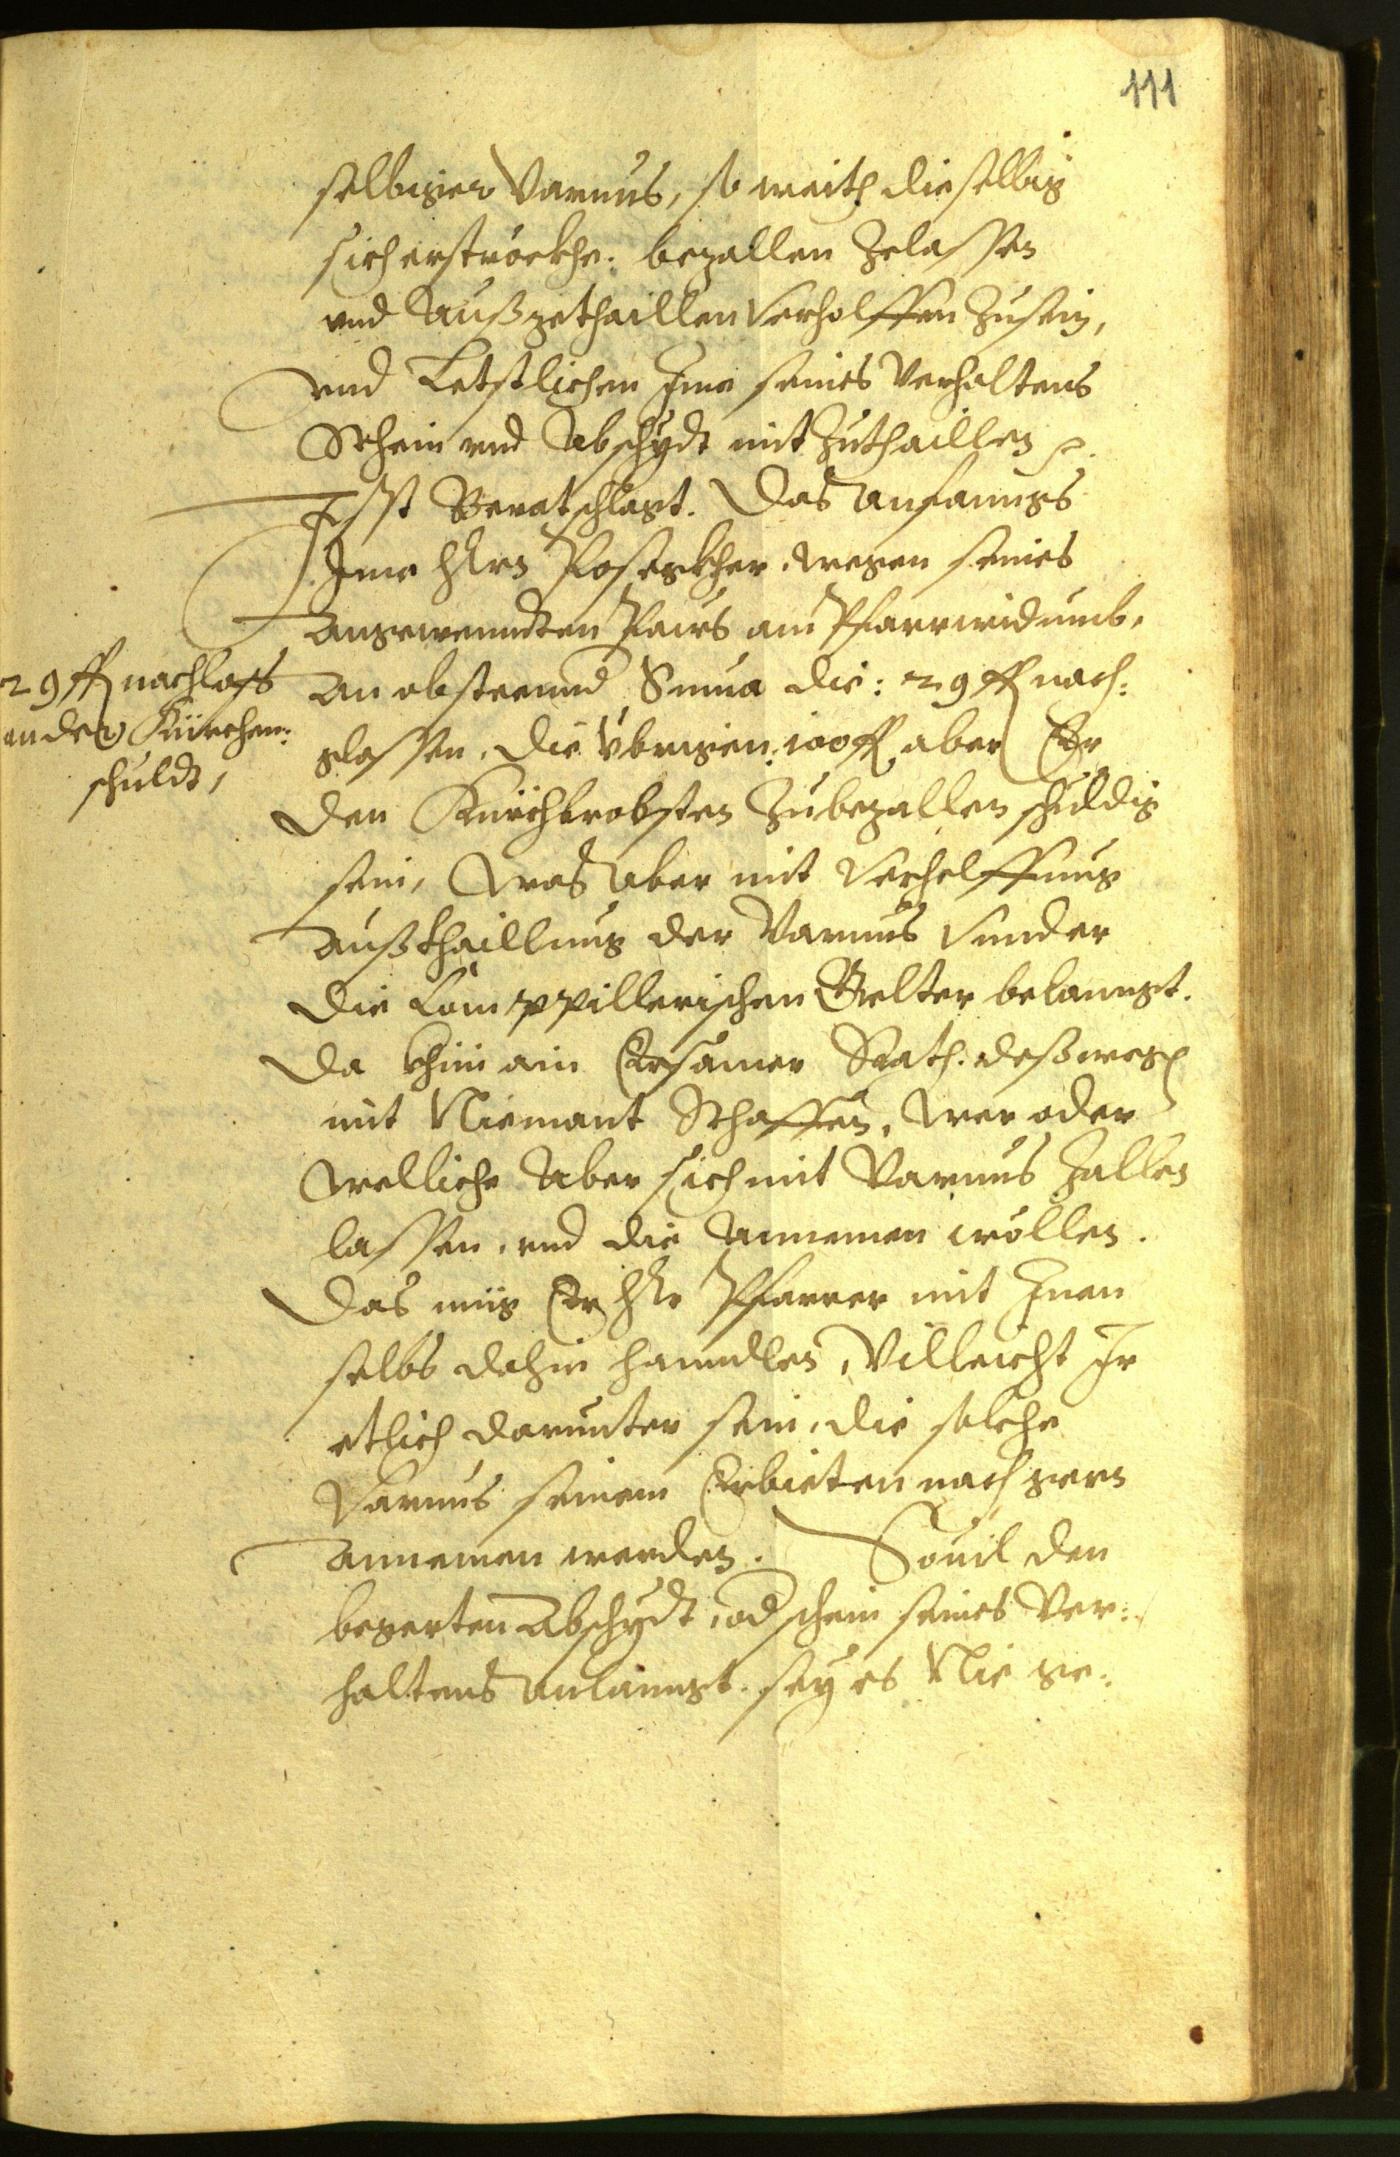 111
selbiger Varnus, so weith dieselbig
sich erströckhe. bezallen Zelassen
vnd Außgethaillen verholffen Zusein,
vnd Letstlichen Ime seines verhaltens
Schein vnd Abschydt mit Zuthaillen
Ist Beratschlagt. Das Anfanngs
Ime Hern wegen seines
Angewenndten Paws am Pfarrwidumb,
An obsteennd Suma die: 29 ff nach:
glassen, die Übrigen: 100 ff aber Er
den Kürchbrobsten Zubezallen schuldig
sein, Was Aber mit Verhelffung
Außthaillung der Varnus vnnder
die Gelter belanngt.
Da khün ain Ersamer Rath deßwegen
mit Niemant Schaffen, wer oder
Welliche Aber sich mit Varnus Zallen
lassen, vnd die Annemen wöllen.
Das müg Er Her Pfarrer mit Inen
selbs dahin hanndlen, Villeicht Ir
etlich darunter sein, die solche
Varnus seinem Erbieten nach gern
Annemen werden. Souil den
begerten Abschydt, od schein seines Ver:
haltens Anlanngt. sey es Nie ge:
29 ff nachlass
an der Kürchen:
schuldt,